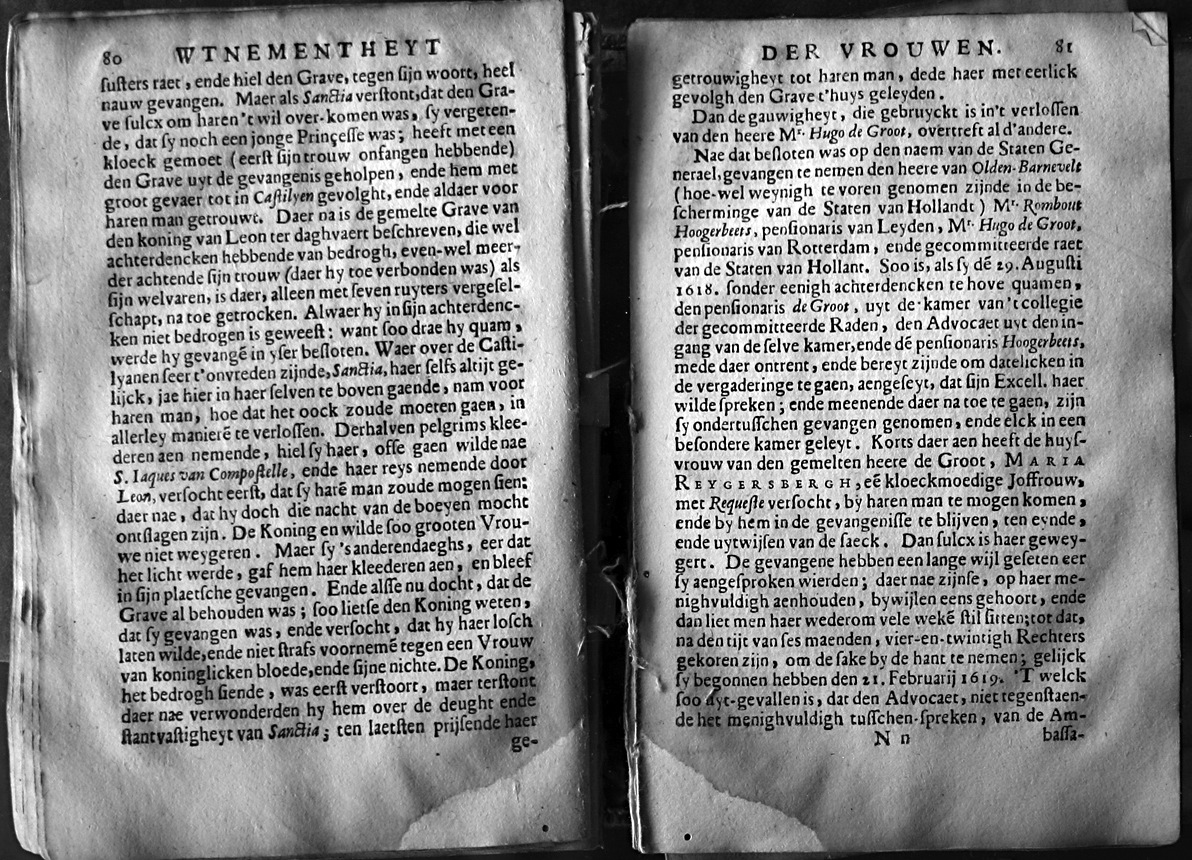 80 WTNEMENTHEYT
ſuſters raet, ende hiel den Grave, tegen ſijn woort, heel
nauw gevangen. Maer als Sanctia verſtont, dat den Gra-
ve ſulcx om haren 't wil over-komen was, ſy vergeten-
de, dat ſy noch een jonge Prinçeſſe was; heeft met een
kloeck gemoet (eerſt ſijn trouw onfangen hebbende)
den Grave uyt de gevangenis geholpen, ende hem met
groot gevaer tot in Caſtilyen gevolght, ende aldaer voor
haren man getrouwt. Daer na is de gemelte Grave van
den koning van Leon ter daghvaert beſchreven, die wel
achterdencken hebbende van bedrogh, even-wel meer-
der achtende ſijn trouw (daer hy toe verbonden was) als
ſijn welvaren, is daer, alleen met ſeven ruyters vergeſel-
ſchapt, na toe getrocken. Alwaer hy in ſijn achterdenc-
ken niet bedrogen is geweeſt: want ſoo drae hy quam,
werde hy gevangẽ in yſer beſloten. Waer over de Caſti-
lyanen ſeer t'onvreden zijnde, Sanctia, haer ſelfs altijt ge-
lijck, jae hier in haer ſelven te boven gaende, nam voor
haren man, hoe dat het oock zoude moeten gaen, in
allerley manierẽ te verloſſen. Derhalven pelgrims klee-
deren aen nemende, hiel ſy haer, offe gaen wilde nae
S. Iaques van Compoſtelle, ende haer reys nemende door
Leon, verſocht eerſt, dat ſy harẽ man zoude mogen ſien;
daer nae, dat hy doch die nacht van de boeyen mocht
ontſlagen zijn. De Koning en wilde ſoo grooten Vrou-
we niet weygeren. Maer ſy 's anderendaeghs, eer dat
het licht werde, gaf hem haer kleederen aen, en bleef
in ſijn plaetſche gevangen. Ende alſſe nu docht, dat de
Grave al behouden was; ſoo lietſe den Koning weten,
dat ſy gevangen was, ende verſocht, dat hy haer loſch
laten wilde, ende niet ſtrafs voornemẽ tegen een Vrouw
van koninglicken bloede, ende ſijne nichte. De Koning,
het bedrogh ſiende, was eerſt verſtoort, maer terſtont
daer nae verwonderden hy hem over de deught ende
ſtantvaſtigheyt van Sanctia; ten laetſten prijſende haer
ge-
DER VROUWEN. 81
getrouwigheyt tot haren man, dede haer met eerlick
gevolgh den Grave t'huys geleyden.
Dan de gauwigheyt, die gebruyckt is in't verloſſen
van den heere Mr. Hugo de Groot, overtreft al d'andere.
Nae dat beſloten was op den naem van de Staten Ge-
nerael, gevangen te nemen den heere van Olden-Barnevelt
(hoe-wel weynigh te voren genomen zijnde in de be-
ſcherminge van de Staten van Hollandt) Mr. Rombout
Hoogerbeets, penſionaris van Leyden, Mr. Hugo de Groot,
penſionaris van Rotterdam, ende gecommitteerde raet
van de Staten van Hollant. Soo is, als ſy dẽ 29. Auguſti
1618. ſonder eenigh achterdencken te hove quamen,
den penſionaris de Groot, uyt de kamer van 't collegie
der gecommitteerde Raden, den Advocaet uyt den in-
gang van de ſelve kamer, ende dẽ penſionaris Hoogerbeets,
mede daer ontrent, ende bereyt zijnde om datelicken in
de vergaderinge te gaen, aengeſeyt, dat ſijn Excell. haer
wilde ſpreken; ende meenende daer na toe te gaen, zijn
ſy ondertuſſchen gevangen genomen, ende elck in een
beſondere kamer geleyt. Korts daer aen heeft de huyſ-
vrouw van den gemelten heere de Groot, MARIA
REYGERSBERGH, eẽ kloeckmoedige Joffrouw,
met Requeſte verſocht, by haren man te mogen komen,
ende by hem in de gevangeniſſe te blijven, ten eynde,
ende uytwijſen van de ſaeck. Dan ſulcx is haer gewey-
gert. De gevangene hebben een lange wijl geſeten eer
ſy aengeſproken wierden; daer nae zijnſe, op haer me-
nighvuldigh aenhouden, bywijlen eens gehoort, ende
dan liet men haer wederom vele wekẽ ſtil ſitten; tot dat,
na den tijt van ſes maenden, vier-en-twintigh Rechters
gekoren zijn, om de ſake by de hant te nemen; gelijck
ſy begonnen hebben den 21. Februarij 1619. 'T welck
ſoo uyt-gevallen is, dat den Advocaet, niet tegenſtaen-
de het menighvuldigh tuſſchen-ſpreken, van de Am-
N n baſſa-